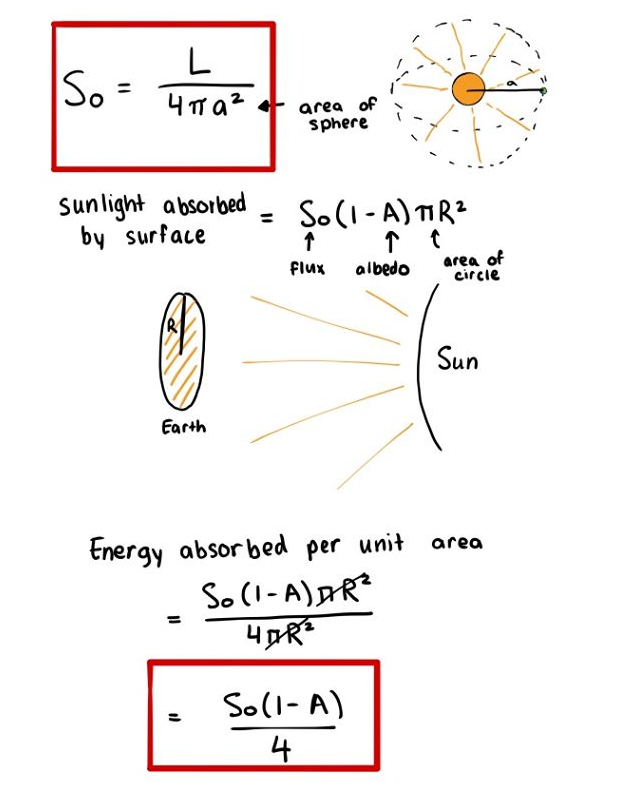 S₀ = L / 4πa²
area of
sphere
a
sunlight absorbed
by surface
= S₀(1-A)πR²
flux
albedo
area of
circle
R
Sun
Earth
Energy absorbed per unit area
= S₀(1-A)πR² / 4πR²
= S₀(1-A) / 4